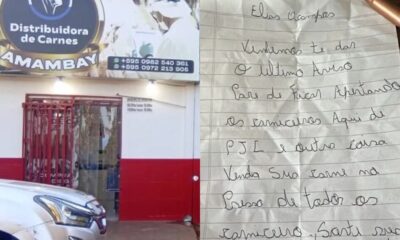 Distribuidora
de Carnes
AMAMBAY
+595 0982 540 361
+595 0972 213 906
Elias Ocampos
Vinhemos te dar
O Ultimo Aviso
Pare de ficar Apertando
os carniceiros Aqui de
PJC e outra coisa
Venda Sua carne no
Preso de todos os
carniceiro. Santi sua